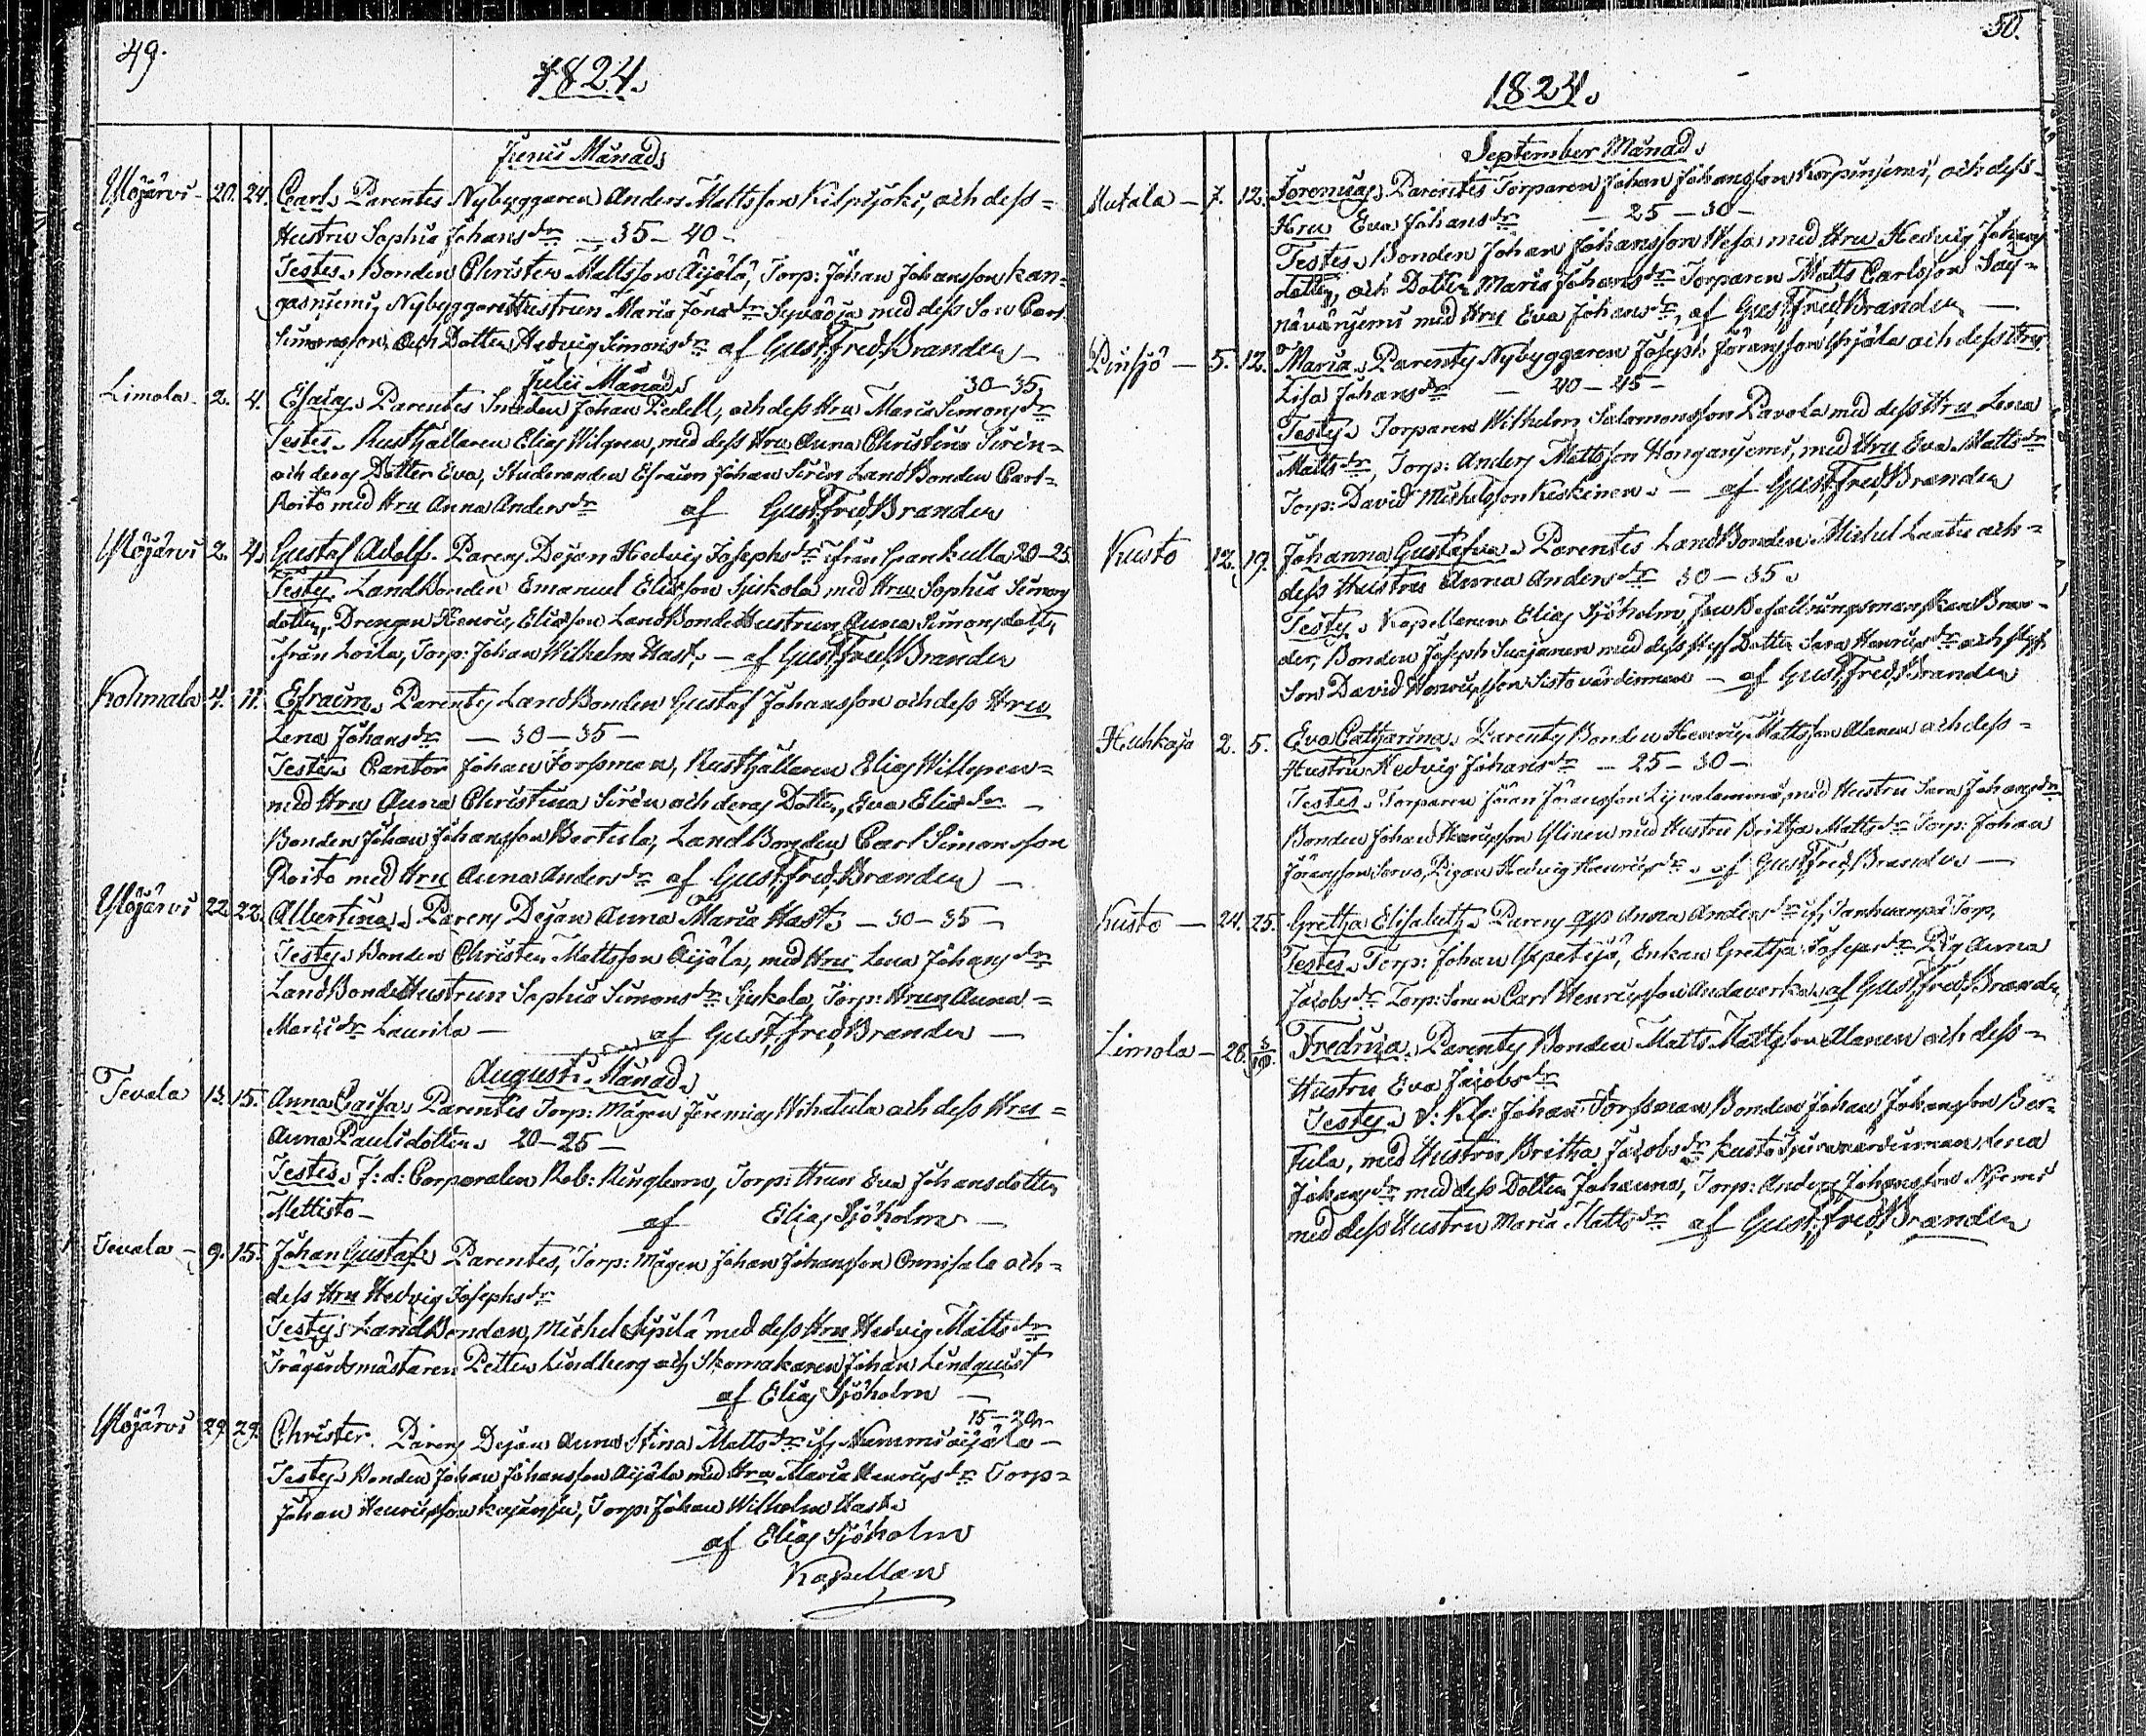 49.
1824.
Junii Månad.
Ylöjärvi - 20. 24. Carl. Parentes Nybyggaren Anders Mattsson Kilpijoki, och dess =
Hustru Sophia Johansdr — 35 - 40 -
Testes. Bonden Christer Mattsson Äijälä, Torp: Johan Johansson Kan=
gasniemi, Nybyggare Hustrun Maria Jonædr med dess Son Carl
Simonsson, och Dotter Hedvig Simonsdr af Gust. Fred. Brander —
Julii Månad.
30 - 35.
Limola - 2. 4. Esaias. Parentes Smeden Johan Pedell, och dess Hru Maria Simonsdr
Testes. Rusthållaren Elias Wilgren, med dess Hru Anna Christina Sirén =
och deras Dotter Eva, Studeranden Efraim Johan Sirén LandBonden Carl =
Roito med Hru Anna Andersdr af Gust. Fred. Brander
Ylöjärvi 2. 4. Gustaf Adolf. Parens Dejan Hedvig Josephsdr ifrån Gankulla 20 - 25.
Testes. LandBonden Emanuel Eliæson Sjukola med Hru Sophia Simons
dotter, Drengen Henric Eliæson LandBonde Hustrun Anna Simonsdotter
ifrån Loila, Torp: Johan Wilhelm Hast. — af Gust. Fred. Brander
Kolimala 4. 11. Efraim. Parentes LandBonden Gustaf Johansson och dess Hru
Lena Johansdr — 30 - 35 -
Testes. Cantor Johan Forssman, Rusthållaren Elias Willgren =
med Hru Anna Christina Sirén och deras Dotter, Eva Eliædr —
Bonden Johan Johansson Bertula, LandBonden Carl Simonsson
Roito med Hru Anna Andersdr af Gust. Fred. Brander —
Ylöjärvi 22. 22. Albertina. Parens Dejan Anna Maria Hast. — 30 - 35 —
Testes. Bonden Christer Mattsson Äijälä, med Hru Lena Johansdr
LandBonde Hustrun Sophia Simonsdr Sjukola, Torp: Hrun Anna =
Laurila — af Gust. Fred. Brander —
Augusti Månad.
Tevala 13. 15. Anna Caisa. Parentes Torp: Mågen Jeremias Wihatula och dess Hru =
Anna Paulidotter. 20 - 25 -
Testes. F: d: Corporalen Rob: Ringbom, Torp: Hrun Eva Johansdotter
Mettisto — af Elias Sjöholm —
Tevala - 9. 15. Johan Gustaf. Parentes, Torp: Mågen Johan Johansson Onnisala och =
dess Hru Hedvig Josephsdr
Testes. LandBonden Michel Sipilä med dess Hru Hedvig Mattsdr
Trägårdsmästaren Petter Lindberg och Skomakaren Johan Lindquist
af Elias Sjöholm —
15 - 20 -
Ylöjärvi 29. 29. Christer. Parens Dejan Anna Stina Mattsdr if. —
Testes. Bonden Johan Johansson Äijälä med Hru Maria Henricsdr Torp =
Johan Henricsson, Torp: Johan Wilhelm Hast.
af Elias Sjöholm
Kapellan
50.
1824.
September Månad.
Mutala — 7. 12. Jeremias. Parentes Torparen Johan Johansson Korpiniemi, och dess =
Hru Eva Johansdr — 25 - 30 -
Testes. Bonden Johan Johansson Wesa med Hru Hedvig Johans
dotter, och Dotter Maria Johansdr Torparen Matts Carlsson Say=
näväniemi med Hru Eva Johansdr, af Gust. Fred. Brander —
Pinsjö — 5. 12. Maria. Parentes Nybyggaren Joseph Göransson och dess Hru
Lisa Johansdr — 40 - 45 -
Testes. Torparen Wilhelm Salomonsson Pavola med dess Hru Lena
Mattsdr, Torp: Anders Mattsson Honganiemi, med Hru Eva Mattsdr
Torp: David Michelsson Keskinen. — af Gust. Fred. Brander
Kusto 12. 19. Johanna Gustafva. Parentes LandBonden Michel och =
dess Hustru Anna Andersdr 30 - 35.
Testes. Kapellanen Elias Sjöholm, Fru Befallningsmanskan Bran=
der, Bonden Joseph med dess Styf Dotter Sara Henricsdr och Styf
Son David Henricsson — af Gust. Fred. Brander
Huhkaja 2. 5. Eva Catharina. Parentes Bonden Henric Mattsson Alanen och dess =
Hustru Hedvig Johansdr — 25 - 30 -
Testes. Torparen Jöran Jöransson med Hustru Sara Johansdr
Bonden Johan Henricsson Ylinen med Hustru Britha Mattsdr Torp: Johan
Jöransson, Pigan Hedvig Henricsdr. af Gust. Fred. Brander —
Kusto — 24. 25. Gretha Elisabeth. Parens Anna Andersdr Torp,
Testes. Torp: Johan, Enkan Gretha Josepsdr Pig. Anna
Jacobsdr Torp: Sonen Carl Henricsson. af Gust. Fred. Brander
Limola — 28. Fredrica. Parentes Bonden Matts Mattsson Alanen och dess =
Hustru Eva Jacobsdr
Testes. Johan Forssman Bonden Johan Johansson Ber=
tula, med Hustru Britha Jacobsdr Lena
Johansdr med dess Dotter Johanna, Torp: Anders Johansson Niemi
med dess Hustru Maria Mattsdr af Gust. Fred. Brander